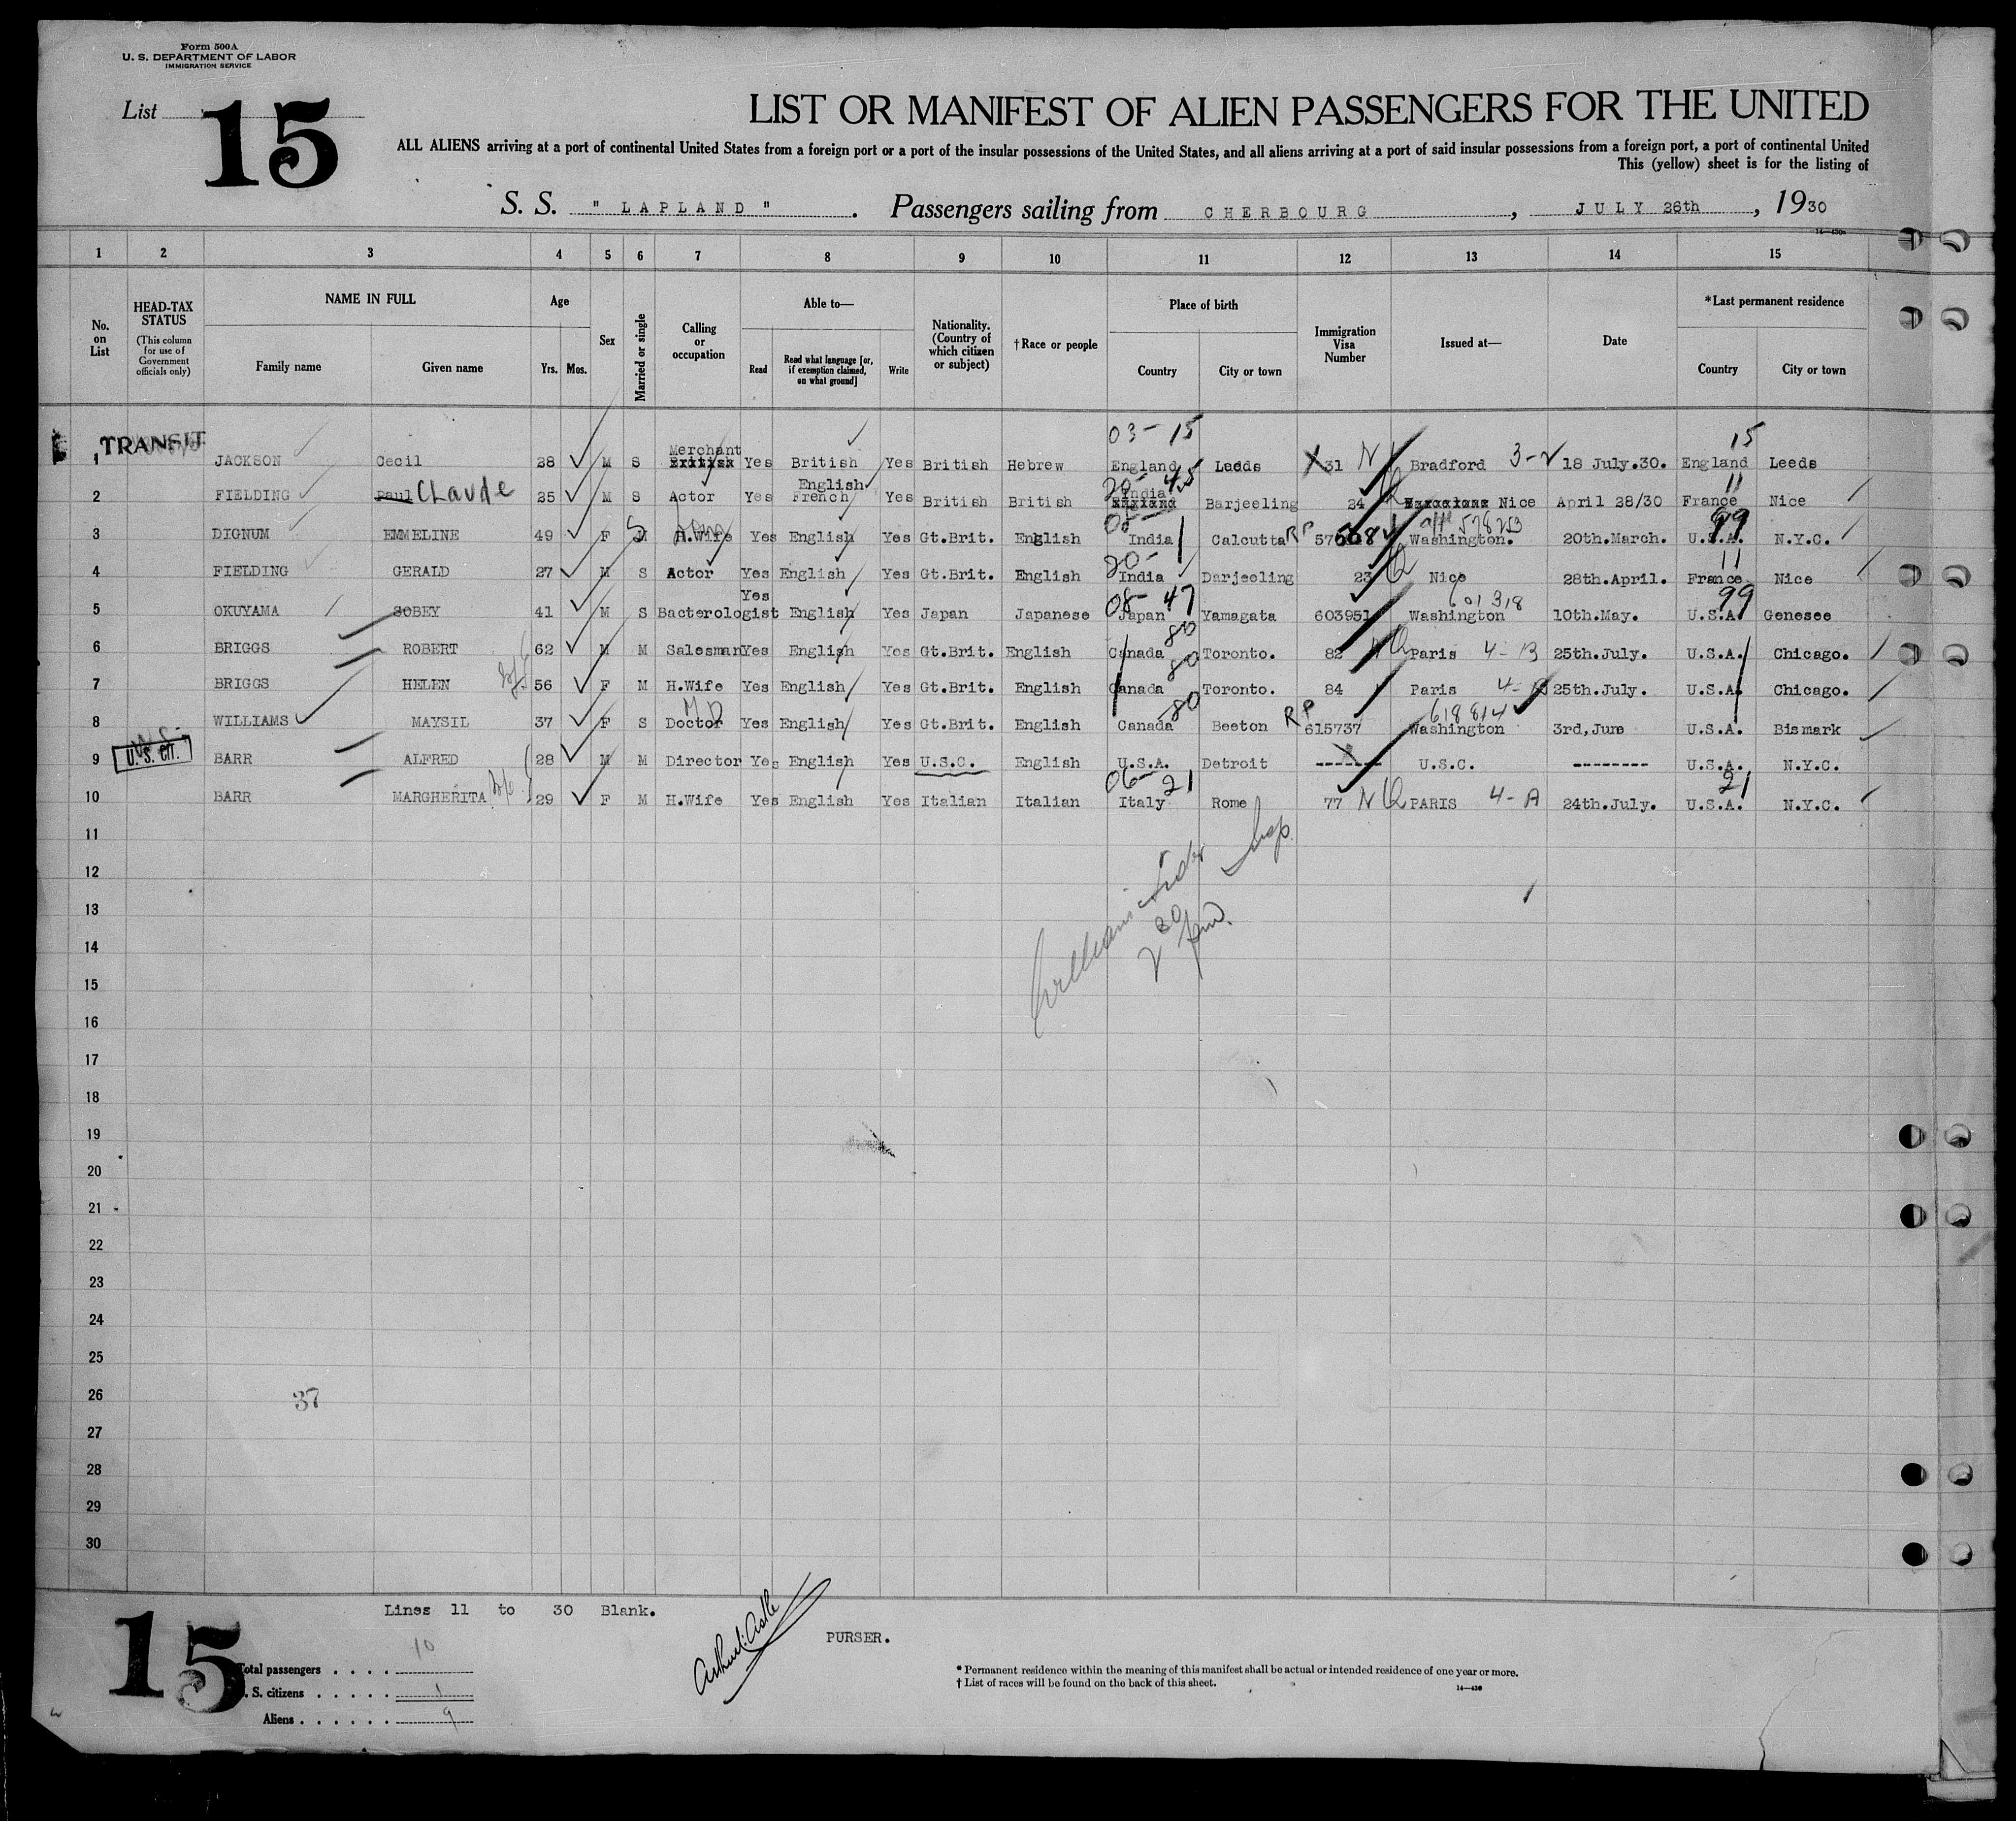 Form 500A
U. S. DEPARTMENT OF LABOR
IMMIGRATION SERVICE
List 15
LIST OR MANIFEST OF ALIEN PASSENGERS FOR THE UNITED
ALL ALIENS arriving at a port of continental United States from a foreign port or a port of the insular possessions of the United States, and all aliens arriving at a port of said insular possessions from a foreign port, a port of continental United
This (yellow) sheet is for the listing of
S. S. " LAPLAND " . Passengers sailing from CHERBOURG , JULY 26th , 1930
1 2 3 4 5 6 7 8 9 10 11 12 13 14 15
No. on List
HEAD-TAX STATUS
(This column for use of Government officials only)
NAME IN FULL
Family name Given name
Age
Yrs. Mos.
Sex
Married or single
Calling or occupation
Able to—
Read Read what language [or, if exemption claimed, on what ground] Write
Nationality. (Country of which citizen or subject)
†Race or people
Place of birth
Country City or town
Immigration Visa Number
Issued at—
Date
*Last permanent residence
Country City or town
03- 15 15
TRANSIT
1 JACKSON Cecil 28 M S Merchant Yes British Yes British Hebrew England Leeds 31 N Bradford 3-2 18 July.30. England Leeds
20- 45 11
2 FIELDING Paul Claude 25 M S Actor Yes English French Yes British British India England Barjeeling 24 Nice April 28/30 France Nice
05- 99
3 DIGNUM EMMELINE 49 F M S H.Wife Yes English Yes Gt.Brit. English India Calcutta RP Washington. 578253 20th.March. U.S.A. N.Y.C.
20- 11
4 FIELDING GERALD 27 M S Actor Yes English Yes Gt.Brit. English India Darjeeling 23 Nice 28th.April. France Nice
08- 47 601318 99
5 OKUYAMA SOBEY 41 M S Bacterologist Yes English Yes Japan Japanese Japan Yamagata 603951 Washington 10th.May. U.S.A. Genesee
80
6 BRIGGS ROBERT 62 M M Salesman Yes English Yes Gt.Brit. English Canada Toronto. 82 Paris 4-B 25th.July. U.S.A. Chicago.
80
7 BRIGGS HELEN 56 F M H.Wife Yes English Yes Gt.Brit. English Canada Toronto. 84 Paris 25th.July. U.S.A. Chicago.
MD 80 RP 618814
8 WILLIAMS MAYSIL 37 F S Doctor Yes English Yes Gt.Brit. English Canada Beeton 615737 Washington 3rd,June U.S.A. Bismark
9 U.S. CIT. BARR ALFRED 28 M M Director Yes English Yes U.S.C. English U.S.A. Detroit ------- U.S.C. -------- U.S.A. N.Y.C.
06- 21 21
10 BARR MARGHERITA 29 F M H.Wife Yes English Yes Italian Italian Italy Rome 77 N PARIS 4-A 24th.July. U.S.A. N.Y.C.
11
12
Insp.
13
14
15
16
17
18
19
20
21
22
23
24
25
26
37
27
28
29
30
Lines 11 to 30 Blank.
PURSER.
15
Total passengers . . . . 10
S. citizens . . . . . 1
Aliens . . . . . . 9
* Permanent residence within the meaning of this manifest shall be actual or intended residence of one year or more.
† List of races will be found on the back of this sheet.
14—430